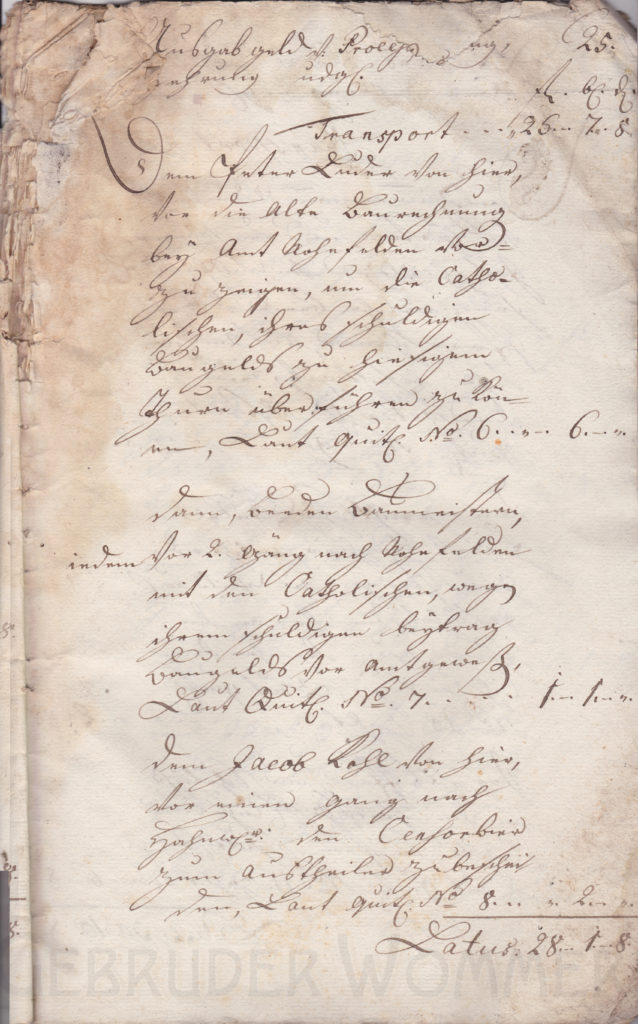 Ausgab geld v. Process
Zehrung udgl.
25.
fl. bz. d.
Transport . . . 26.. 7. 8.
Dem Peter Luder von hier,
vor die Alte Baurechnung
bey Amt Nohfelden vor=
zu zeigen, um die Catho-
lischen, ihres schuldigen
Baugelds zu hiesigem
Thurn überführen zu kön
en, Laut Quit. No. 6 . . „ .. 6.. „.
dann, beeden Baumeistern,
iedem vor 2. gäng nach Nohfelden
mit den Catholischen, wegen
ihrem schuldigen beytrag
Baugelds vor Amt geweß,
Laut Quit. No. 7. . . . . 1.. 1.. „.
dem Jacob Kohl von hier,
vor einen gang nach
den Censorbier
zum Austheiler zu beschei
den, Laut Quit. No 8. .. „. 2.. „.
Latus. 28.. 1.. 8.
GEBRÜDER WOMMER